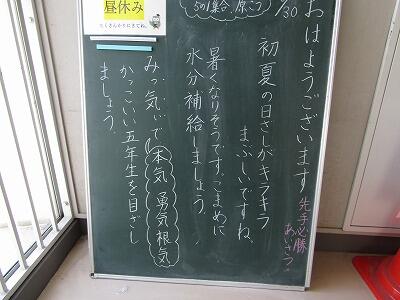 昼休み
たくさんかりにきてね。
/30
5の1集合
おはようございます
先手必勝
あいさつ！
初夏の日ざしがキラキラ
まぶしいですね。
暑くなりそうです。こまめに
水分補給しましょう。
みっ気ぃで本気 勇気 根気
かっこいい五年生を目ざし
ましょう。